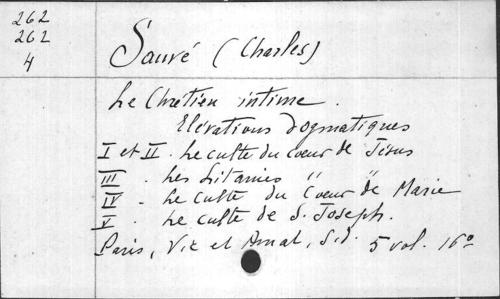 262
262
4
Sauvé (Charles)
Le Chrétien intime.
Elévations dogmatiques
I et II. Le culte du Cœur de Jésus
III. Les Litanies " " "
IV. Le culte du Cœur de Marie
V. Le culte de S. Joseph.
Paris, Vic et Amat, S.d. 5 vol. 16°